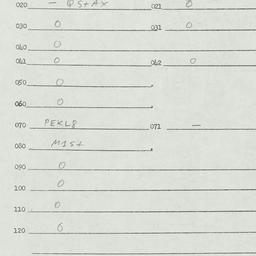 020 — QStAX 021 0
030 0 031 0
040 0
041 0 042 0
050 0
060 0
070 PEKL8 071 —
080 M1St
090 0
100 0
110 0
120 0